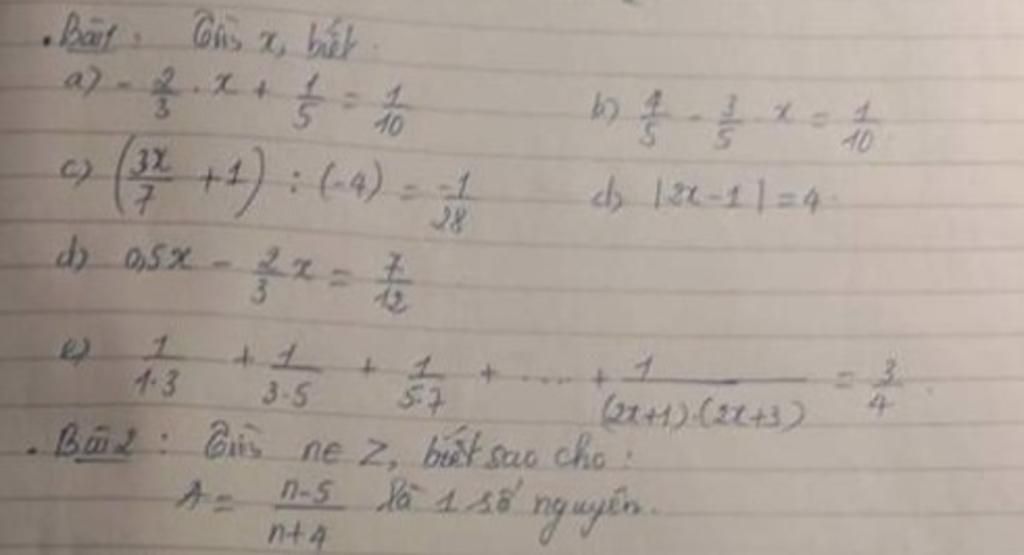 . Bài 1 : Tìm x, biết.
a) - 2/3 . x + 1/5 = 1/10 b) 4/5 - 3/5 x = 1/10
c) (3x/7 + 1) : (-4) = -1/28 d) |2x-1| = 4.
d) 0,5x - 2/3 x = 7/12
e) 1/1.3 + 1/3.5 + 1/5.7 + .... + 1/(2x+1).(2x+3) = 3/4.
. Bài 2 : Tìm n ∈ Z, biết sao cho :
A = n-5/n+4 là 1 số nguyên.